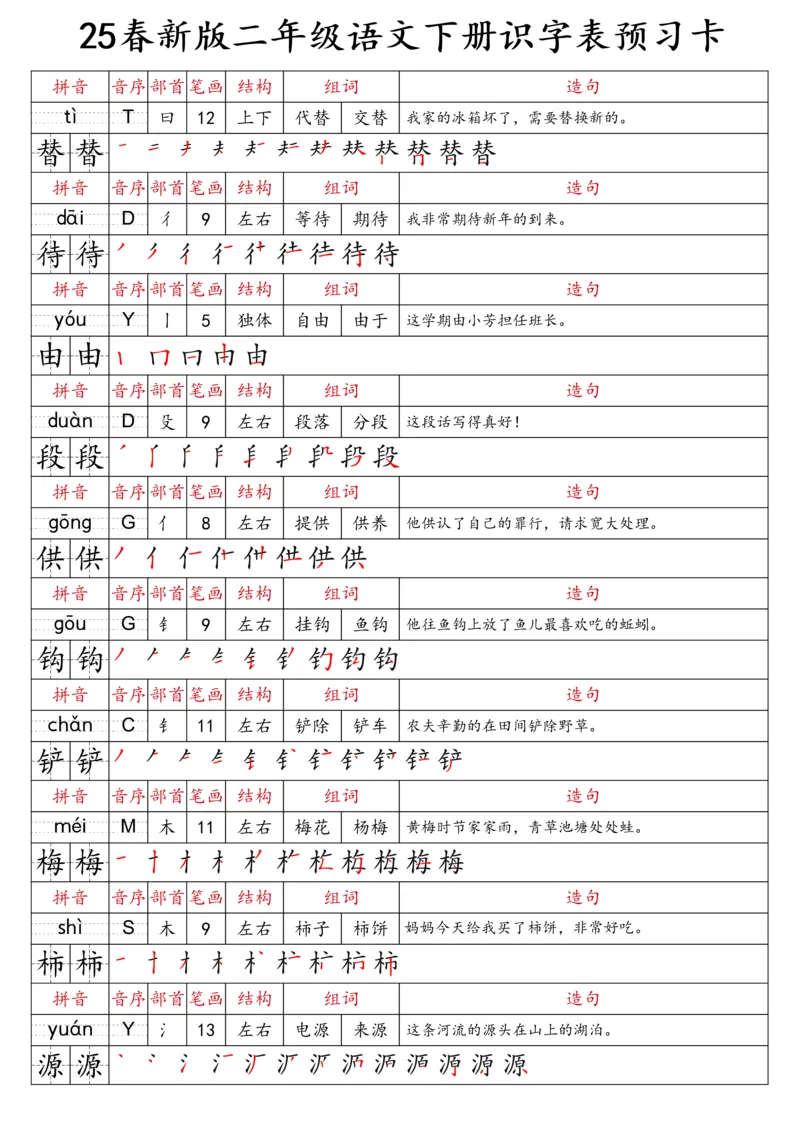 25春新版二年级语文下册识字表预习卡
拼音 音序 部首 笔画 结构 组词 造句
tì T 曰 12 上下 代替 交替 我家的冰箱坏了，需要替换新的。
替 替
拼音 音序 部首 笔画 结构 组词 造句
dāi D 彳 9 左右 等待 期待 我非常期待新年的到来。
待 待
拼音 音序 部首 笔画 结构 组词 造句
yóu Y 丨 5 独体 自由 由于 这学期由小芳担任班长。
由 由
拼音 音序 部首 笔画 结构 组词 造句
duàn D 殳 9 左右 段落 分段 这段话写得真好！
段 段
拼音 音序 部首 笔画 结构 组词 造句
gōng G 亻 8 左右 提供 供养 他供认了自己的罪行，请求宽大处理。
供 供
拼音 音序 部首 笔画 结构 组词 造句
gōu G 钅 9 左右 挂钩 鱼钩 他往鱼钩上放了鱼儿最喜欢吃的蚯蚓。
钩 钩
拼音 音序 部首 笔画 结构 组词 造句
chǎn C 钅 11 左右 铲除 铲车 农夫辛勤的在田间铲除野草。
铲 铲
拼音 音序 部首 笔画 结构 组词 造句
méi M 木 11 左右 梅花 杨梅 黄梅时节家家雨，青草池塘处处蛙。
梅 梅
拼音 音序 部首 笔画 结构 组词 造句
shì S 木 9 左右 柿子 柿饼 妈妈今天给我买了柿饼，非常好吃。
柿 柿
拼音 音序 部首 笔画 结构 组词 造句
yuán Y 氵 13 左右 电源 来源 这条河流的源头在山上的湖泊。
源 源